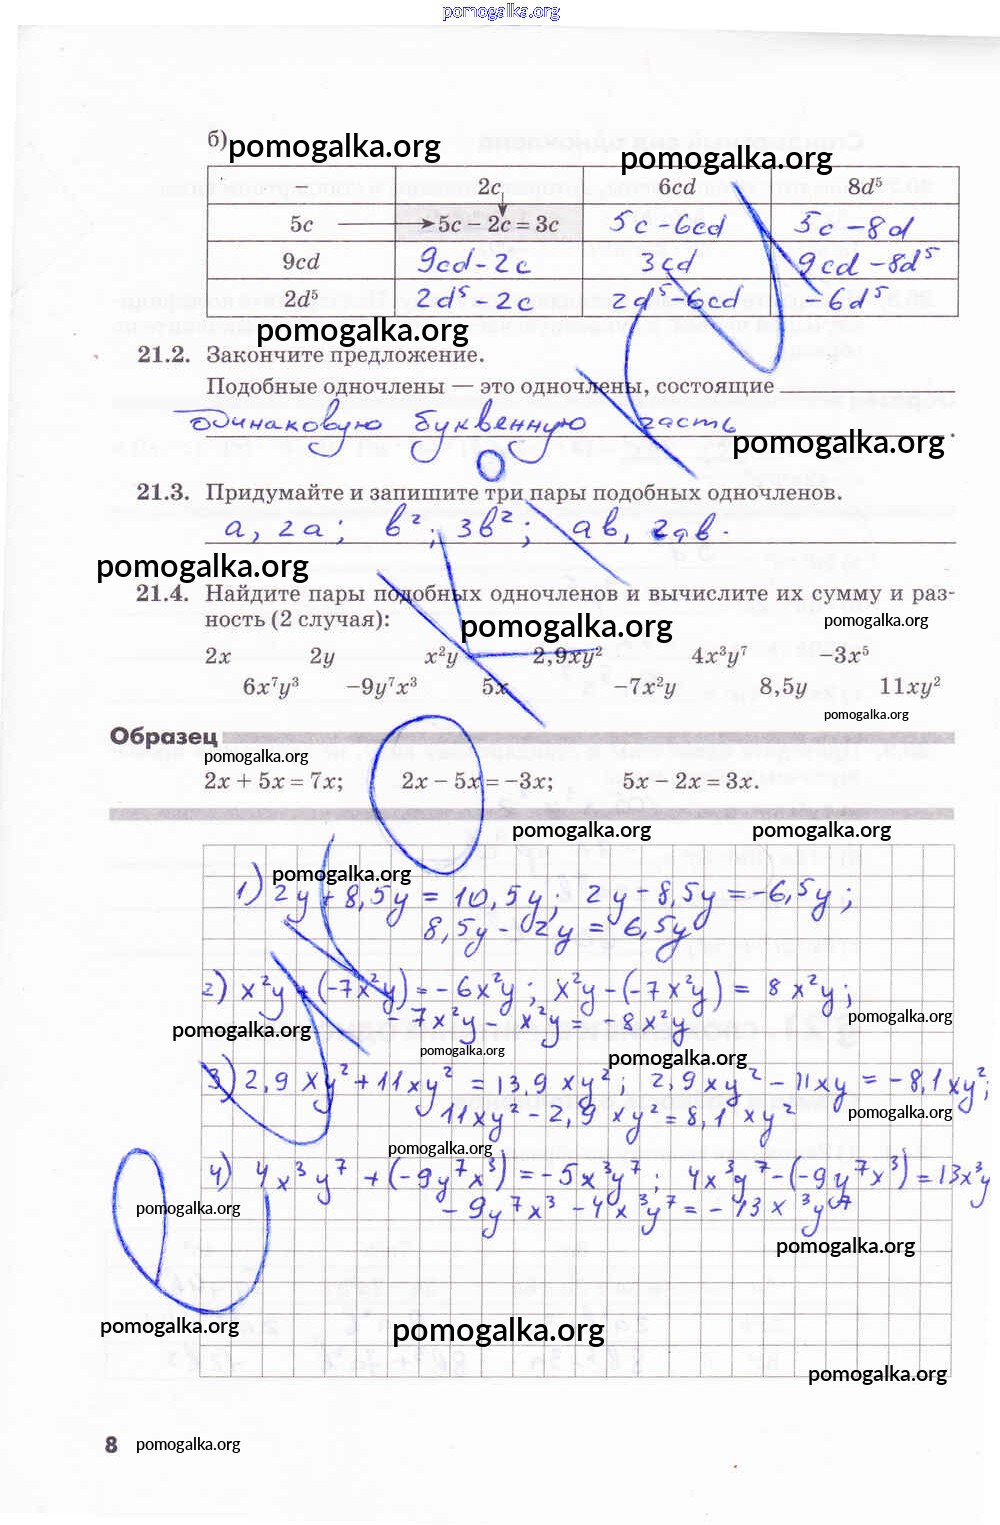 pomogalka.org
б)
pomogalka.org
pomogalka.org
– 2c 6cd 8d⁵
5c 5c – 2c = 3c 5c – 6cd 5c – 8d
9cd 9cd – 2c 3cd 9cd – 8d⁵
2d⁵ 2d⁵ – 2c 2d⁵ – 6cd – 6d⁵
pomogalka.org
21.2. Закончите предложение.
Подобные одночлены — это одночлены, состоящие
одинаковую буквенную часть
.
pomogalka.org
21.3. Придумайте и запишите три пары подобных одночленов.
a, 2a; b²; 3b²; ab, 2ab.
pomogalka.org
21.4. Найдите пары подобных одночленов и вычислите их сумму и раз-
ность (2 случая):
pomogalka.org
pomogalka.org
2x 2y x²y 2,9xy² 4x³y⁷ –3x⁵
6x⁷y³ –9y⁷x³ 5x –7x²y 8,5y 11xy²
pomogalka.org
Образец
pomogalka.org
2x + 5x = 7x; 2x – 5x = –3x; 5x – 2x = 3x.
pomogalka.org
pomogalka.org
pomogalka.org
1) 2y + 8,5y = 10,5y; 2y – 8,5y = –6,5y;
8,5y – 2y = 6,5y
2) x²y + (–7x²y) = –6x²y; x²y – (–7x²y) = 8x²y;
–7x²y – x²y = –8x²y
pomogalka.org
pomogalka.org
pomogalka.org
pomogalka.org
3) 2,9xy² + 11xy² = 13,9xy²; 2,9xy² – 11xy = –8,1xy²;
11xy² – 2,9xy² = 8,1xy²
pomogalka.org
pomogalka.org
4) 4x³y⁷ + (–9y⁷x³) = –5x³y⁷; 4x³y⁷ – (–9y⁷x³) = 13x³y
–9y⁷x³ – 4x³y⁷ = –13x³y⁷
pomogalka.org
pomogalka.org
pomogalka.org
pomogalka.org
pomogalka.org
8
pomogalka.org